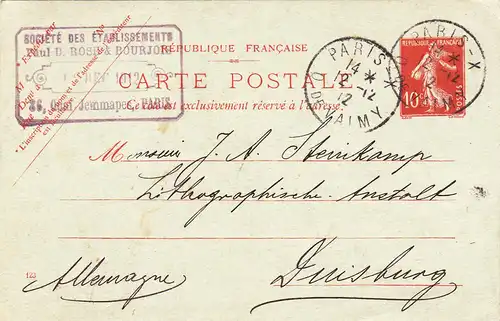 SOCIÉTÉ DES ÉTABLISSEMENTS
Paul D. ROSE & BOURJON
1912
86, Quai Jemmapes, PARIS
RÉPUBLIQUE FRANÇAISE
CARTE POSTALE
Ce côté est exclusivement réservé à l'adresse.
PARIS-X
14 *
2-12
12
PARIS-X
2-12
10c
POSTES
Monsieur J. A. Steinkamp
Lithographische-Anstalt
Duisburg
Allemagne
123